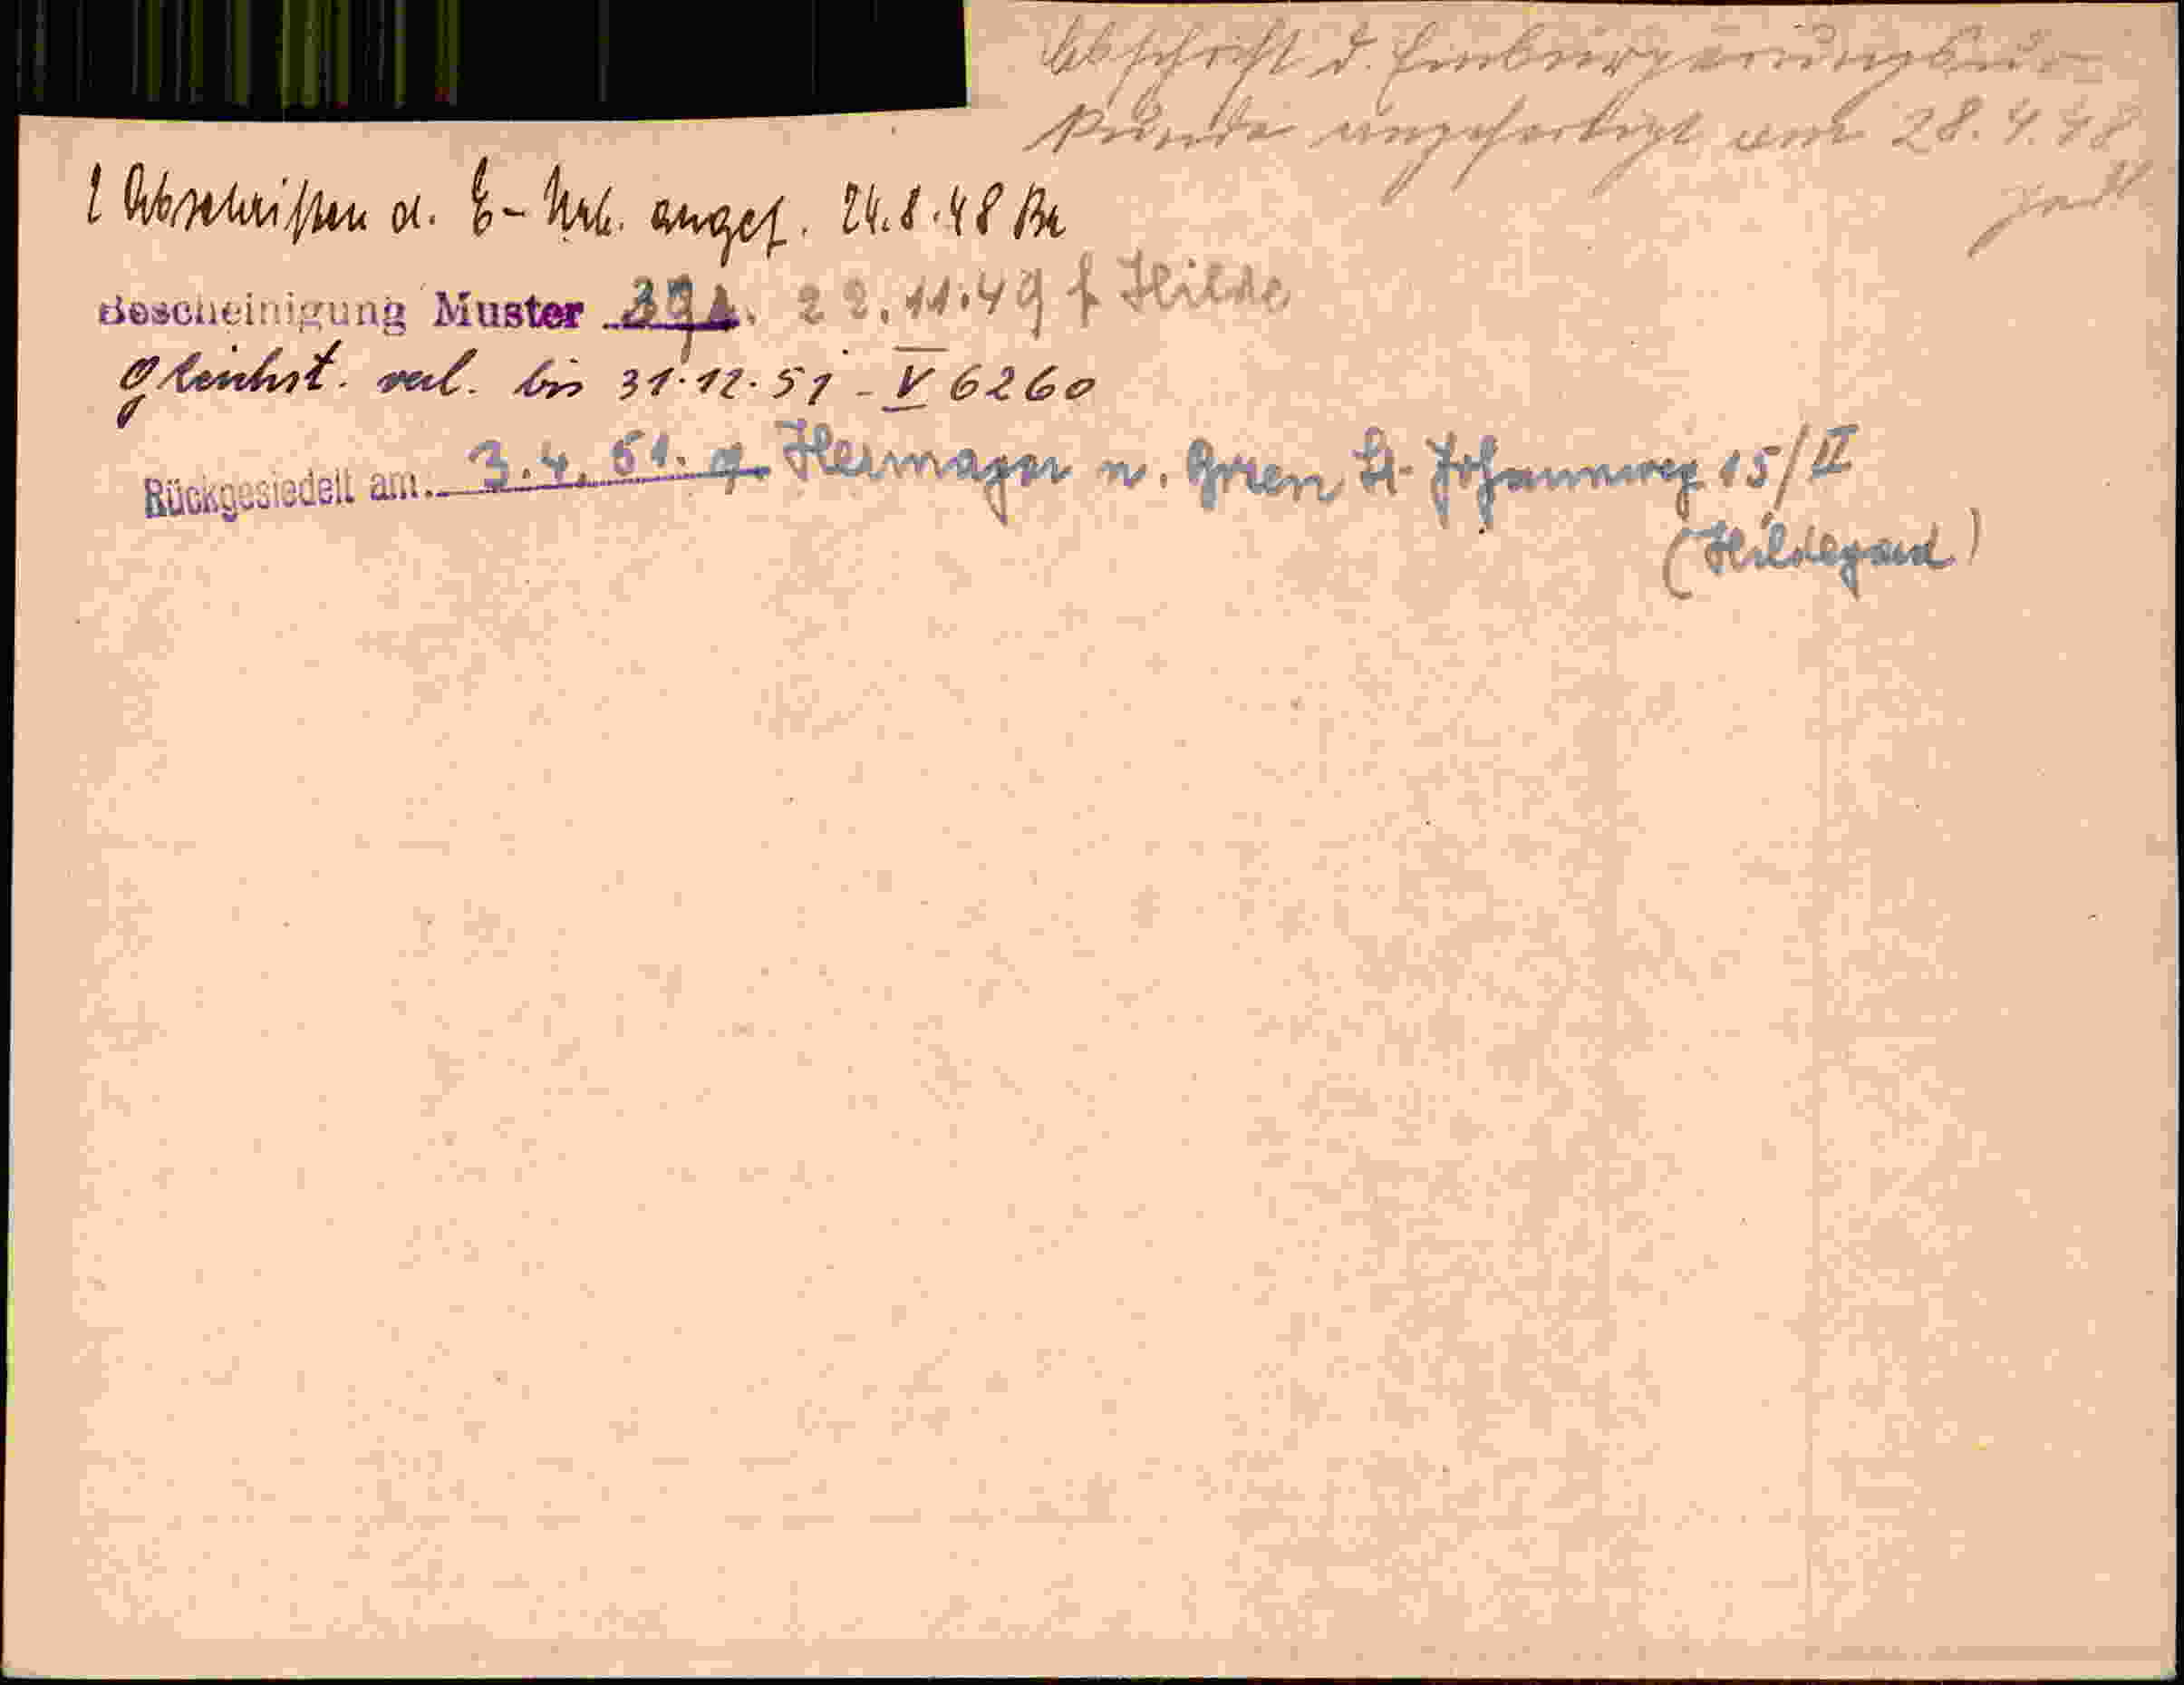 Abschrift d. Einbürgerungsur-
kunde angefertigt am 28.4.48
2 Abschriften d. E-Urk. angef. 24.8.48 Br
Bescheinigung Muster 22.11.49 f Hilde
Gleichst. verl. bis 31.12.51 - V 6260
Rückgesiedelt am 3.4.51. Hermagor n. Gries St. Johannweg 15/II
(Hildegard)